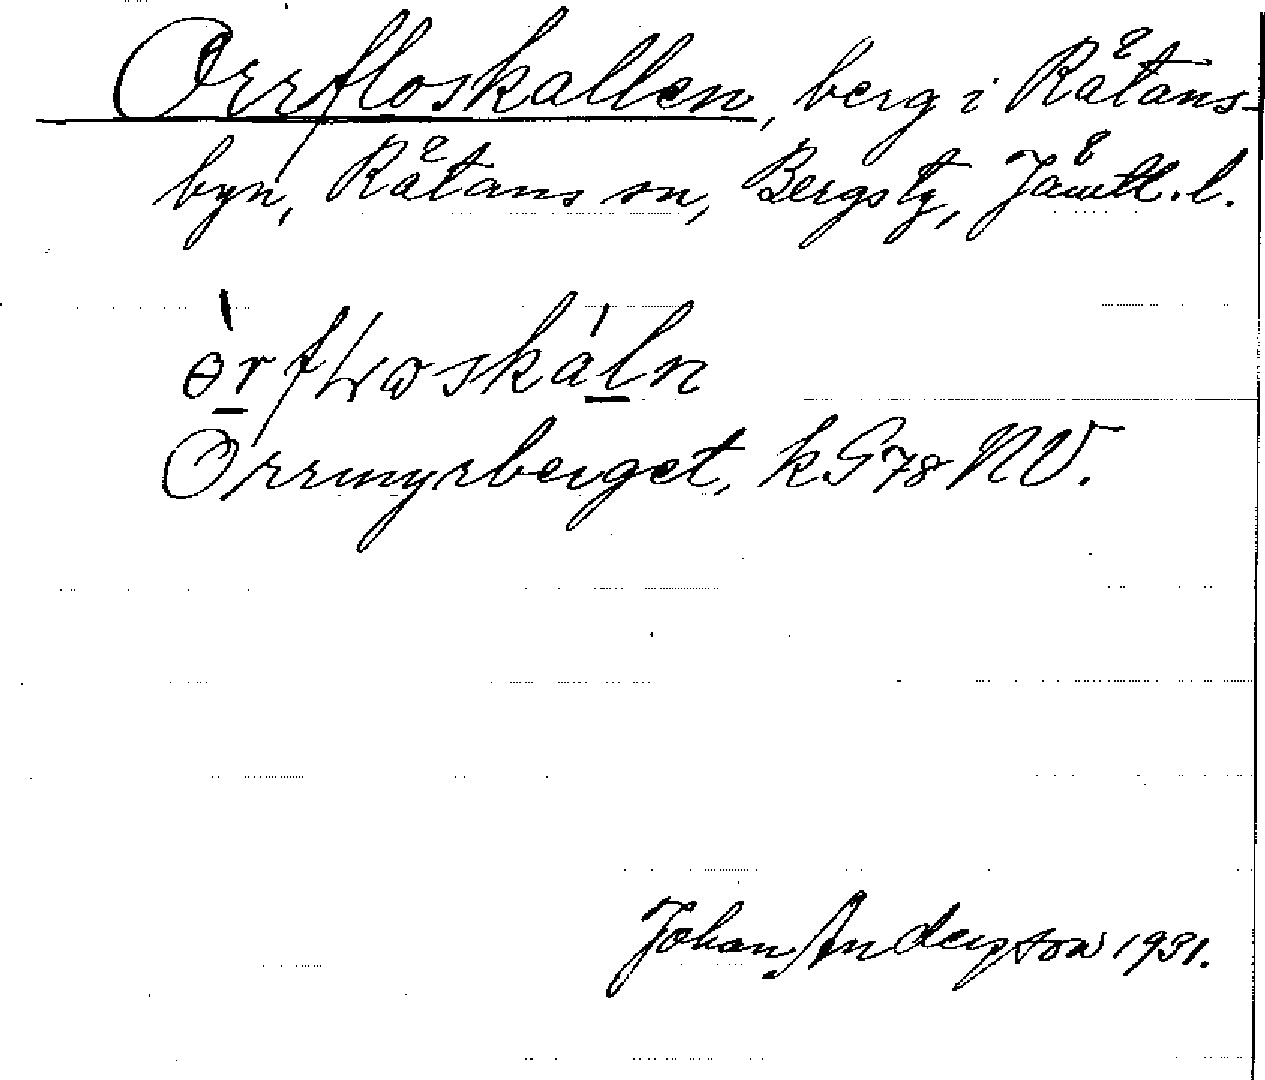 Orrfloskallen, berg i Råtans-
byn, Råtans sn, Bergs tg, Jämtl. l.
Orrmyrberget, k G 78 NV.
Johan Anderson 1931.